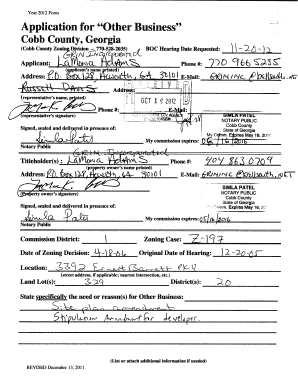 Year 2012 Form
Application for "Other Business"
Cobb County, Georgia
(Cobb County Zoning Division – 770-528-2035) BOC Hearing Date Requested: 11-20-12
GRIN Incorporated
Applicant: LaMona Adams Phone #: 770 966 5235
(applicant's name printed)
Address: P.O. Box 128, Acworth, GA 30101 E-Mail:
Russell Davis Address:
(representative's name, printed)
OCT 16 2012
Phone #: E-Mail:
(representative's signature)
SIMILA PATEL
NOTARY PUBLIC
Cobb County
State of Georgia
My Comm. Expires May 16, 2016
Signed, sealed and delivered in presence of:
My commission expires: 05/16/2016
Notary Public
GRIN Incorporated
Titleholder(s): LaMona Adams Phone #: 404 863 0709
(property owner's name printed)
Address: P.O. Box 128, Acworth, GA 30101 E-Mail:
(Property owner's signature)
SIMILA PATEL
NOTARY PUBLIC
Cobb County
State of Georgia
My Comm. Expires May 16, 2016
Signed, sealed and delivered in presence of:
Simila Patel My commission expires: 05/16/2016
Notary Public
Commission District: 1 Zoning Case: Z-197
Date of Zoning Decision: 4-18-06 Original Date of Hearing: 12-20-05
Location: 3392 Ernest Barrett PKY
(street address, if applicable; nearest intersection, etc.)
Land Lot(s): 329 District(s): 20
State specifically the need or reason(s) for Other Business:
Site plan amendment
Stipulation Amendment for developer.
(List or attach additional information if needed)
REVISED December 13, 2011